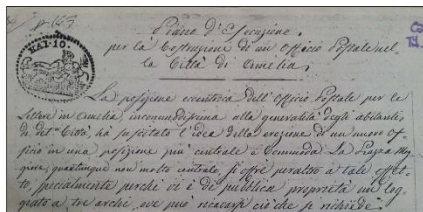 n. 663
Piano d'Esecuzione.
per la Costruzione di un Officio Postale nel
la Città di Amelia.
BAI·10·
La posizione eccentrica dell'Officio Postale per le
lettere in Amelia, incomodissima alla generalità degli abitanti
di det.ª Città, ha suscitato l'idea della erezione di un nuovo of
ficio in una posizione più centrale e commoda. La Piazza Mag
giore, quantunque non molto centrale, si offre peraltro a tale effet
to, specialmente perchè vi è di pubblica proprietà un log
giato a tre archi, ove può ricavarsi ciò che si richiede.